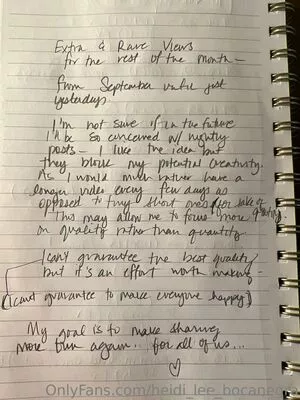 Extra & Rare Views
for the rest of the month –
from September until just
yesterday
I'm not sure if in the future
I'll be so concerned w/ nightly
posts – I like the idea but
they block my potential creativity.
As I would much rather have a
longer video every few days as
opposed to tiny short ones for sake of
This may allow me to focus more
on quality rather than quantity.
I can't guarantee the best quality
but it's an effort worth making –
(I can't guarantee to make everyone happy)
My goal is to make sharing
more fun again.. for all of us...
♡
OnlyFans.com/heidi_lee_bocanegra